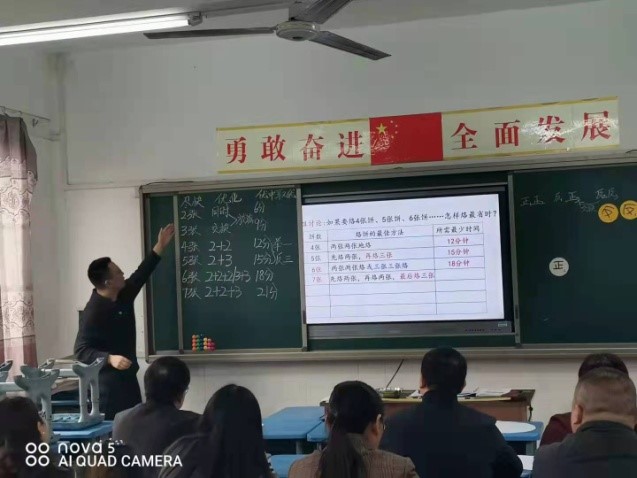 勇敢奋进 全面发展
2张 同时 6分
3张 交换 9分
4张 2+2 12分
5张 2+3 15分
6张 2+2+2/3+3 18分
7张 2+2+3 21分
讨论：如果要烙4张饼、5张饼、6张饼……怎样烙最省时？
饼数 烙饼的最佳方法 所需最少时间
4张 两张两张地烙 12分钟
5张 先烙两张，再烙三张 15分钟
6张 两张两张烙或三张三张烙 18分钟
7张 先烙两张，再烙两张，最后烙三张
正
nova 5
AI QUAD CAMERA